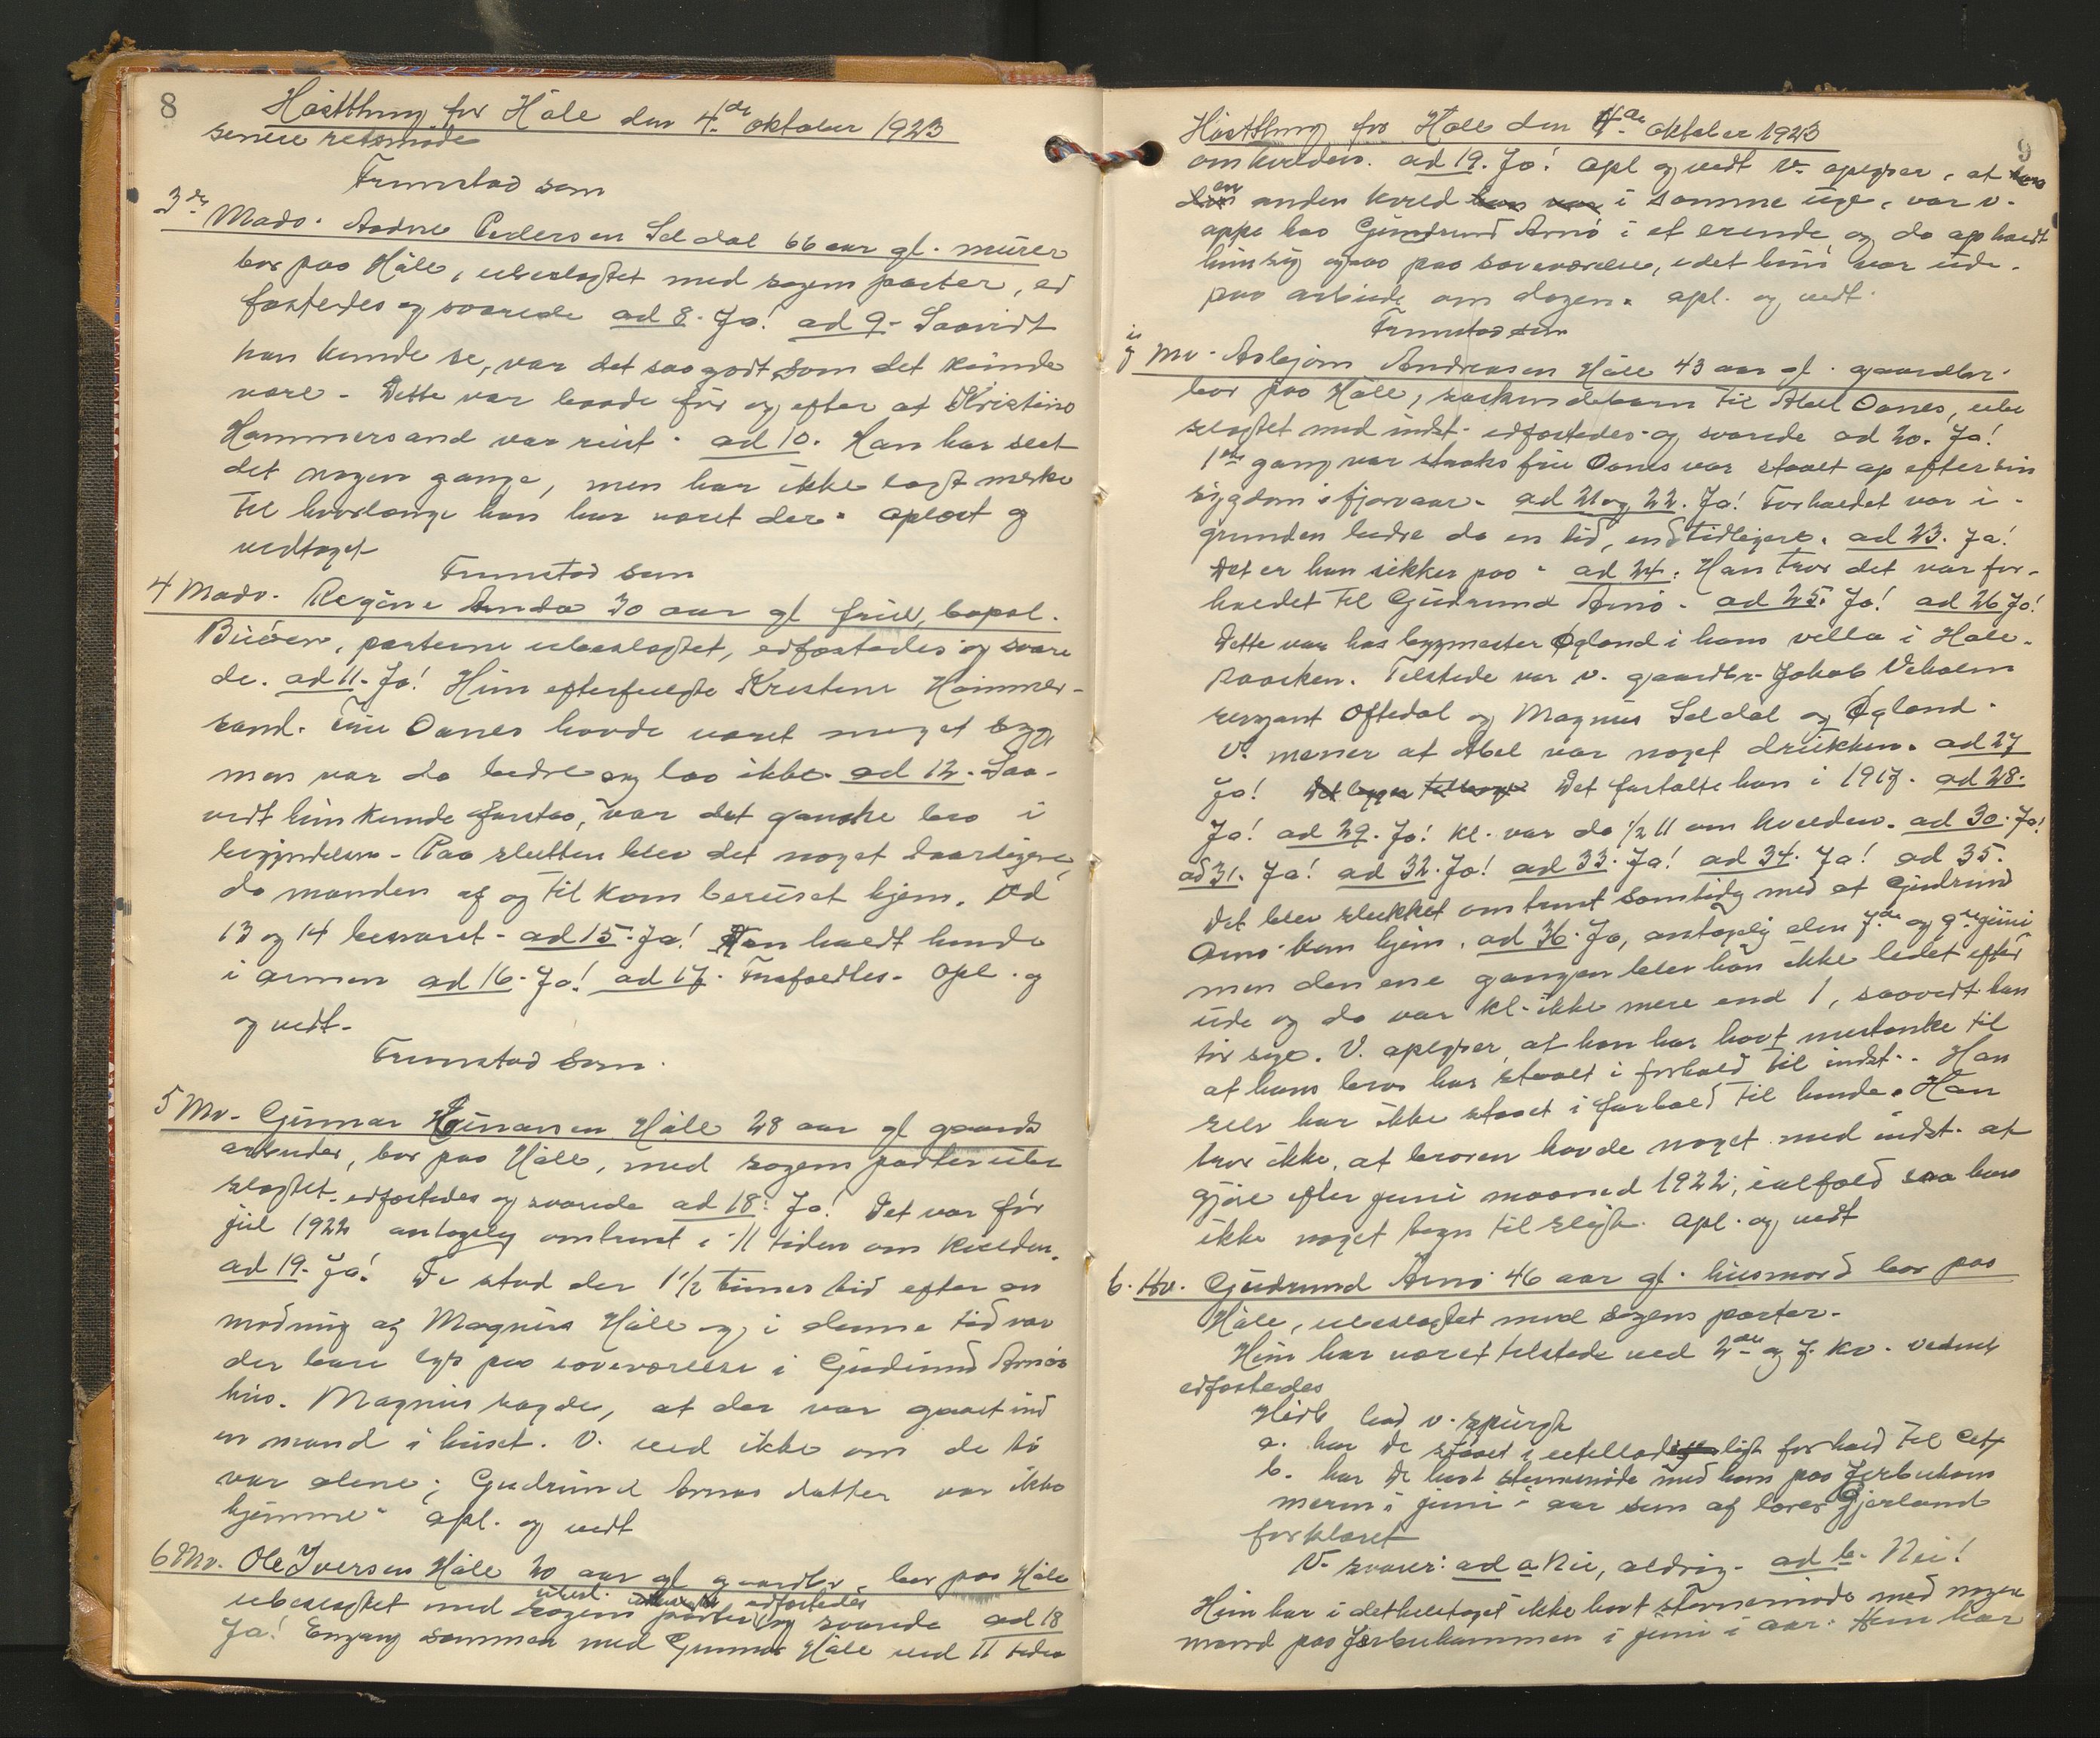 8
Høstthing for Håle den 4de oktober 1923
senere retsmøde
Fremstod som
3de Mads. Andree Pedersen Seldal 66 aar gl. murer
bor paa Håle, ubeslægtet med sagens parter, ed
fæstedes og svarede ad 8. Ja! ad 9. Saavidt
han kunde se, var det saa godt som det kunde
være. Dette var baade før og efter at Kristine
Hammersand var reist. ad 10. Han har seet
det nogen gange, men har ikke lagt merke
til hvorlænge han har været der. Oplæst og
vedtaget
Fremstod som
4 Mads. Regine Anda 30 aar gl frue, bopæl.
Buøen, parterne ubeslægtet, edfæstedes og svare
de. ad 11. Ja! Hun efterfulgte Kristene Hammer-
sand. Fru Oanes havde været meget syg
men var da bedre og laa ikke. ad 12. Saa-
vidt hun kunde forstaa, var det ganske bra i
begyndelsen. Paa slutten blev det noget daarligere,
da manden af og til kom beruset hjem. Ad
13 og 14 besvaret. ad 15. Ja! Han holdt hende
i armen ad 16. Ja! ad 17. Frafaldtes. Opl. og
og vedt.
Fremstod som.
5 Mv. Gunnar Gunarsen Håle 28 aar gl gaards
arbeider, bor paa Håle, med sagens parter ube
slægtet, edfæstedes og svarede ad 18: Ja! Det var før
jul 1922 antagelig omtrent i 11 tiden om kvelden.
ad 19. Ja! De stod der 1 1/2 times tid efter an
modning af Magnus Håle og i denne tid var
der bare lys paa soveværelse i Gudrund Arnøs
hus. Magnus sagde, at der var gaaet ind
en mand i huset. V. ved ikke om de to
var alene; Gudrund Arnøs datter var ikke
hjemme. opl. og vedt
6 Mv. Ole Iversen Håle 20 aar gl gaardbr. bor paa Håle
ubeslægtet med sagens parter, edfæstedes og svarede ad 18
Ja! Engang sammen med Gunnar Håle ved 11 tiden
9
Høstthing for Håle den 4de oktober 1923
om kvelden. ad 19. Ja! opl og vedt V. oplyser, at
en anden kveld i samme uge, var v.
oppe hos Gundrund Arnø i et erende og da opholdt
hun sig ogsaa paa soveværelse, idet hun var ude
paa arbeide om dagen. opl. og vedt.
Fremstod som
Mv. Asbjørn Andreasen Håle 43 aar gl. gaardbr.
bor paa Håle, søskendebarn til Abel Oanes, ube
slægtet med indst. edfæstedes og svarede ad 20. Ja!
1ste gang var straks frue Oanes var staaet op efter sin
sygdom i fjoraar. ad 21 og 22. Ja! Forholdet var i
grunden bedre da en tid, end tidligere. ad 23. Ja!
Det er han sikker paa. ad 24. Han tror det var for-
holdet til Gudrund Arnø. ad 25. Ja! ad 26 Ja!
Dette var hos bygmester Øgland i hans villa i Hale-
Tilstede var v. gaardbr. Jakob Veholm
sersjant Oftedal og Magnus Seldal og Øgland.
V. mener at Abel var noget drukken. ad 27
Ja! Det fortalte han i 1917. ad 28.
Ja! ad 29. Ja! Kl. var da 1/2 11 om kvelden. ad 30. Ja!
ad 31. Ja! ad 32. Ja! ad 33. Ja! ad 34. Ja! ad 35.
Det blev slukket omtrent samtidig med at Gudrund
Arnø kom hjem. ad 36. Ja, antagelig den 7de og 9de juni
men den ene gangen blev han ikke ledet efter
ude og da var kl. ikke mere end 1, saavidt han
tør sige. V. oplyser, at han har havt mistanke til
at hans bror har staaet i forhold til indst. Han
selv har ikke staaet i forhold til hende. Han
tror ikke, at broren havde noget med indst. at
gjøre efter juni maaned 1922; ialfald saa han
ikke noget tegn til sligt. opl. og vedt
6. Hv. Gudrund Arnø 46 aar gl. husmord bor paa
Håle, ubeslægtet med sagens parter.
Hun har været tilstede ved 2de og 7. Kv. vedmt
edfæstedes
Hidb. bad v. spurgt
a. har De staaet i utilladeligt forhold til Citt
b. har De havt stevnemøde med ham paa Jerbukam
meren i juni i aar som af Gjerland
forklaret
V. svarer: ad a Nei, aldrig. ad b. Nei!
Hun har i det heletaget ikke havt stevnemøde med nogen
mand paa Jærbukammen i juni i aar. Hun har